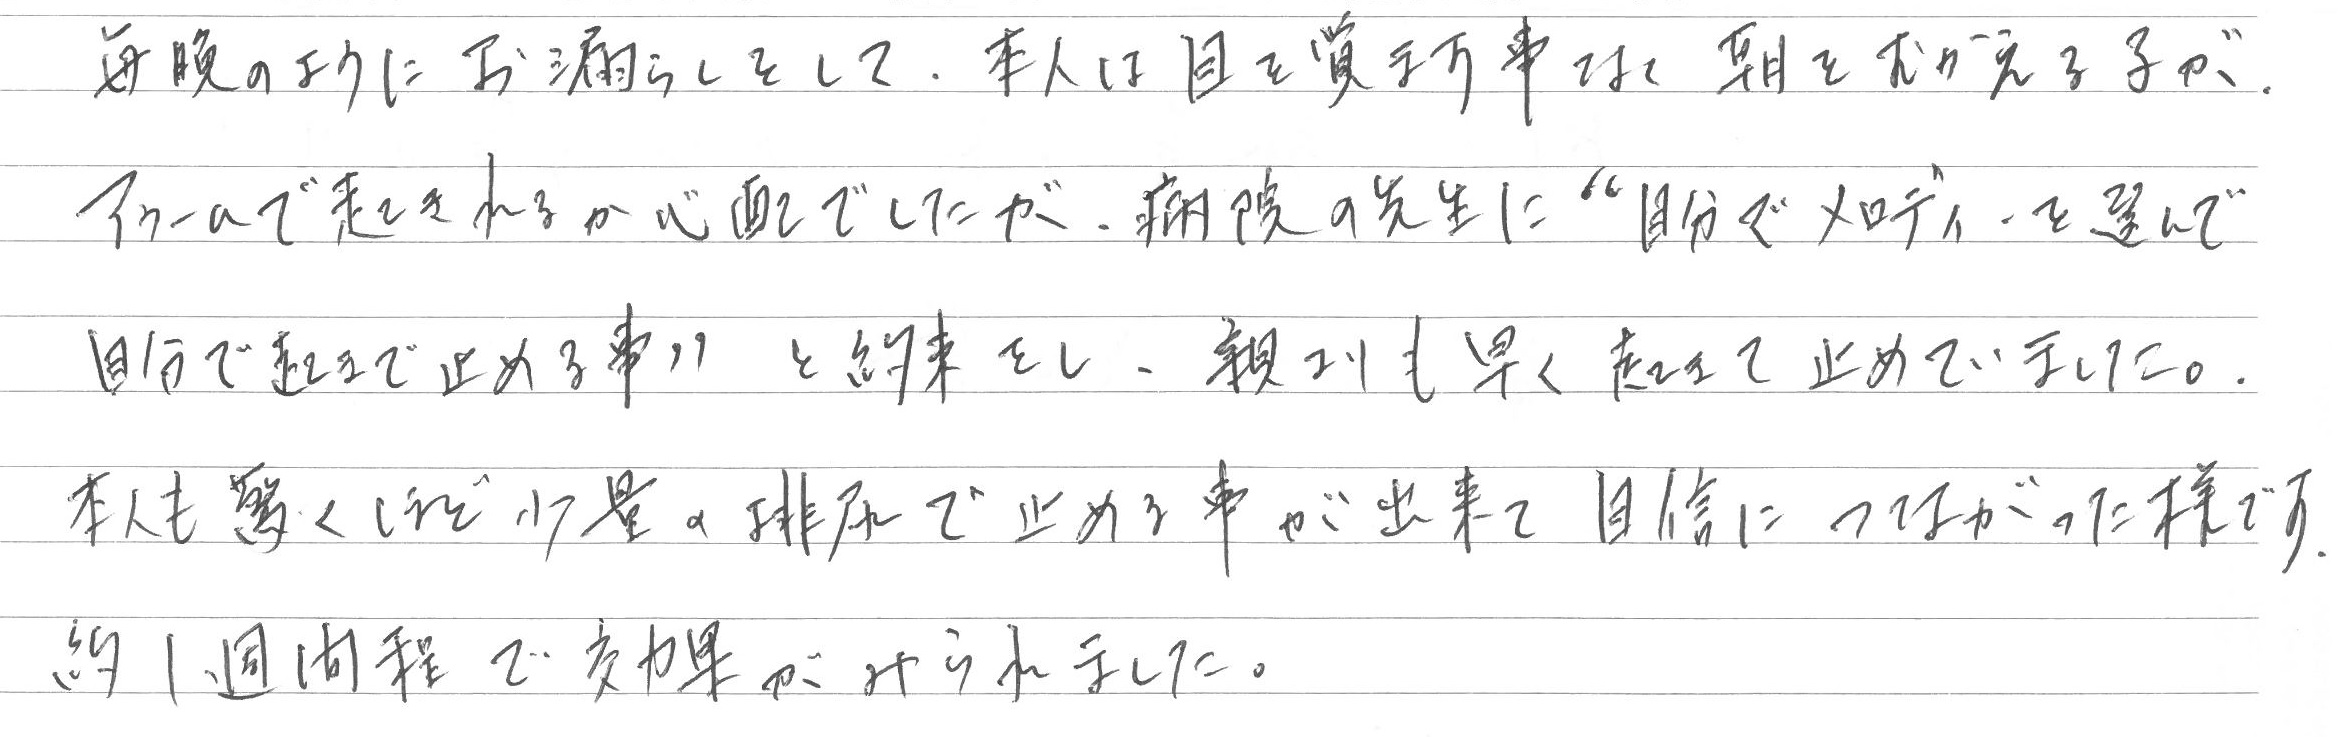 毎晩のようにお漏らしをして、本人は目を覚ます事なく朝をむかえる子が、
アラームで起きれるか心配でしたが、病院の先生に“自分でメロディーを選んで
自分で起きて止める事”と約束をし、親よりも早く起きて止めていました。
本人も驚くほど少量の排尿で止める事が出来て自信につながった様です。
約1週間程で効果がみられました。